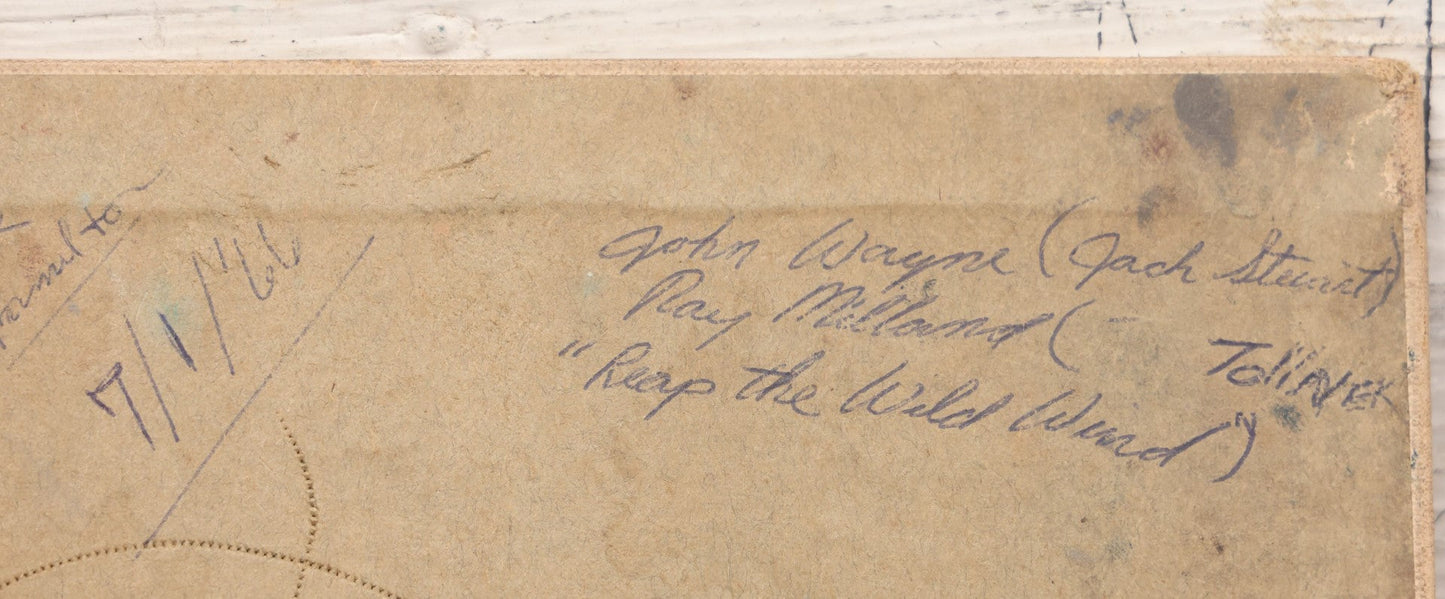 7/1/'66
John Wayne (Jack Stewart)
Ray Milland (- Tolliver
"Reap the Wild Wind")